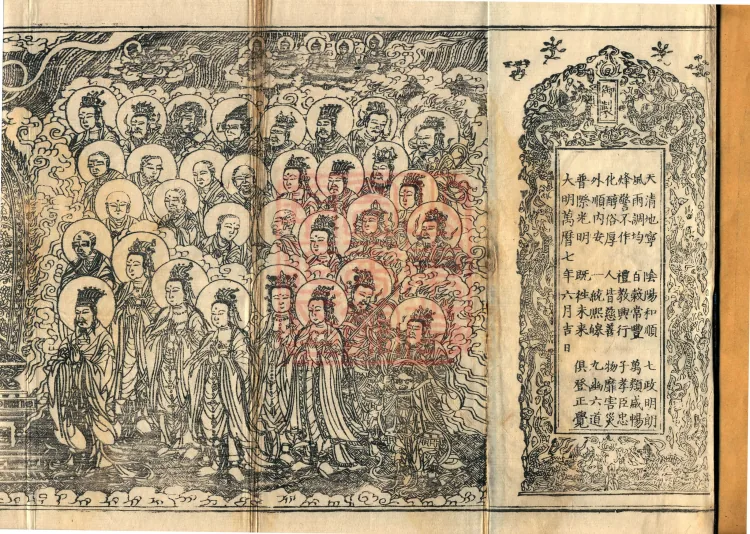 御製
天清地寧 陰陽和順 七政明朗
風雨調均 百穀常豐 萬類咸暢
烽警不作 禮教興行 子孝臣忠
化醇俗厚 人皆慈善 物靡害災
外順内安 一統熈皞 九幽六道
普際光明 既徃未来 俱登正覺
大明萬曆七年六月吉日